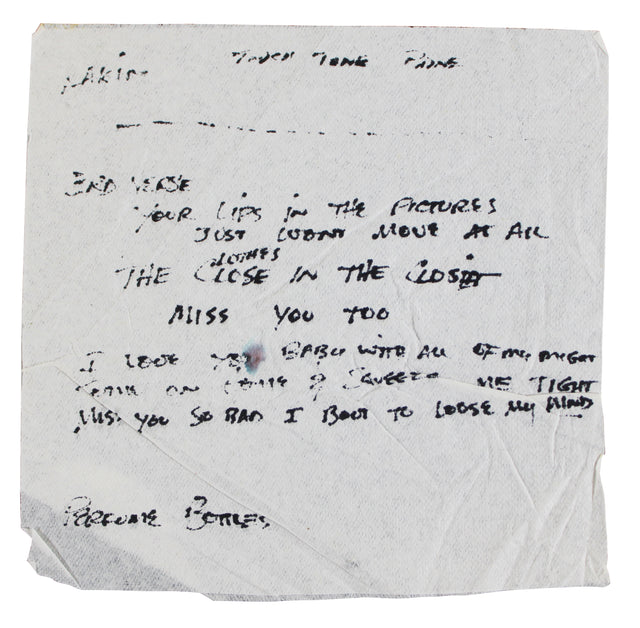 TOUCH TONE PHONE
3RD VERSE
YOUR LIPS IN THE PICTURES
JUST WONT MOVE AT ALL
CLOTHES
THE CLOSE IN THE CLOSET
MISS YOU TOO
I LOVE YOU BABY WITH ALL OF MY MIGHT
COME ON HOME & SQUEEZE ME TIGHT
MISS YOU SO BAD I BOUT TO LOOSE MY MIND
PERFUME BOTTLES